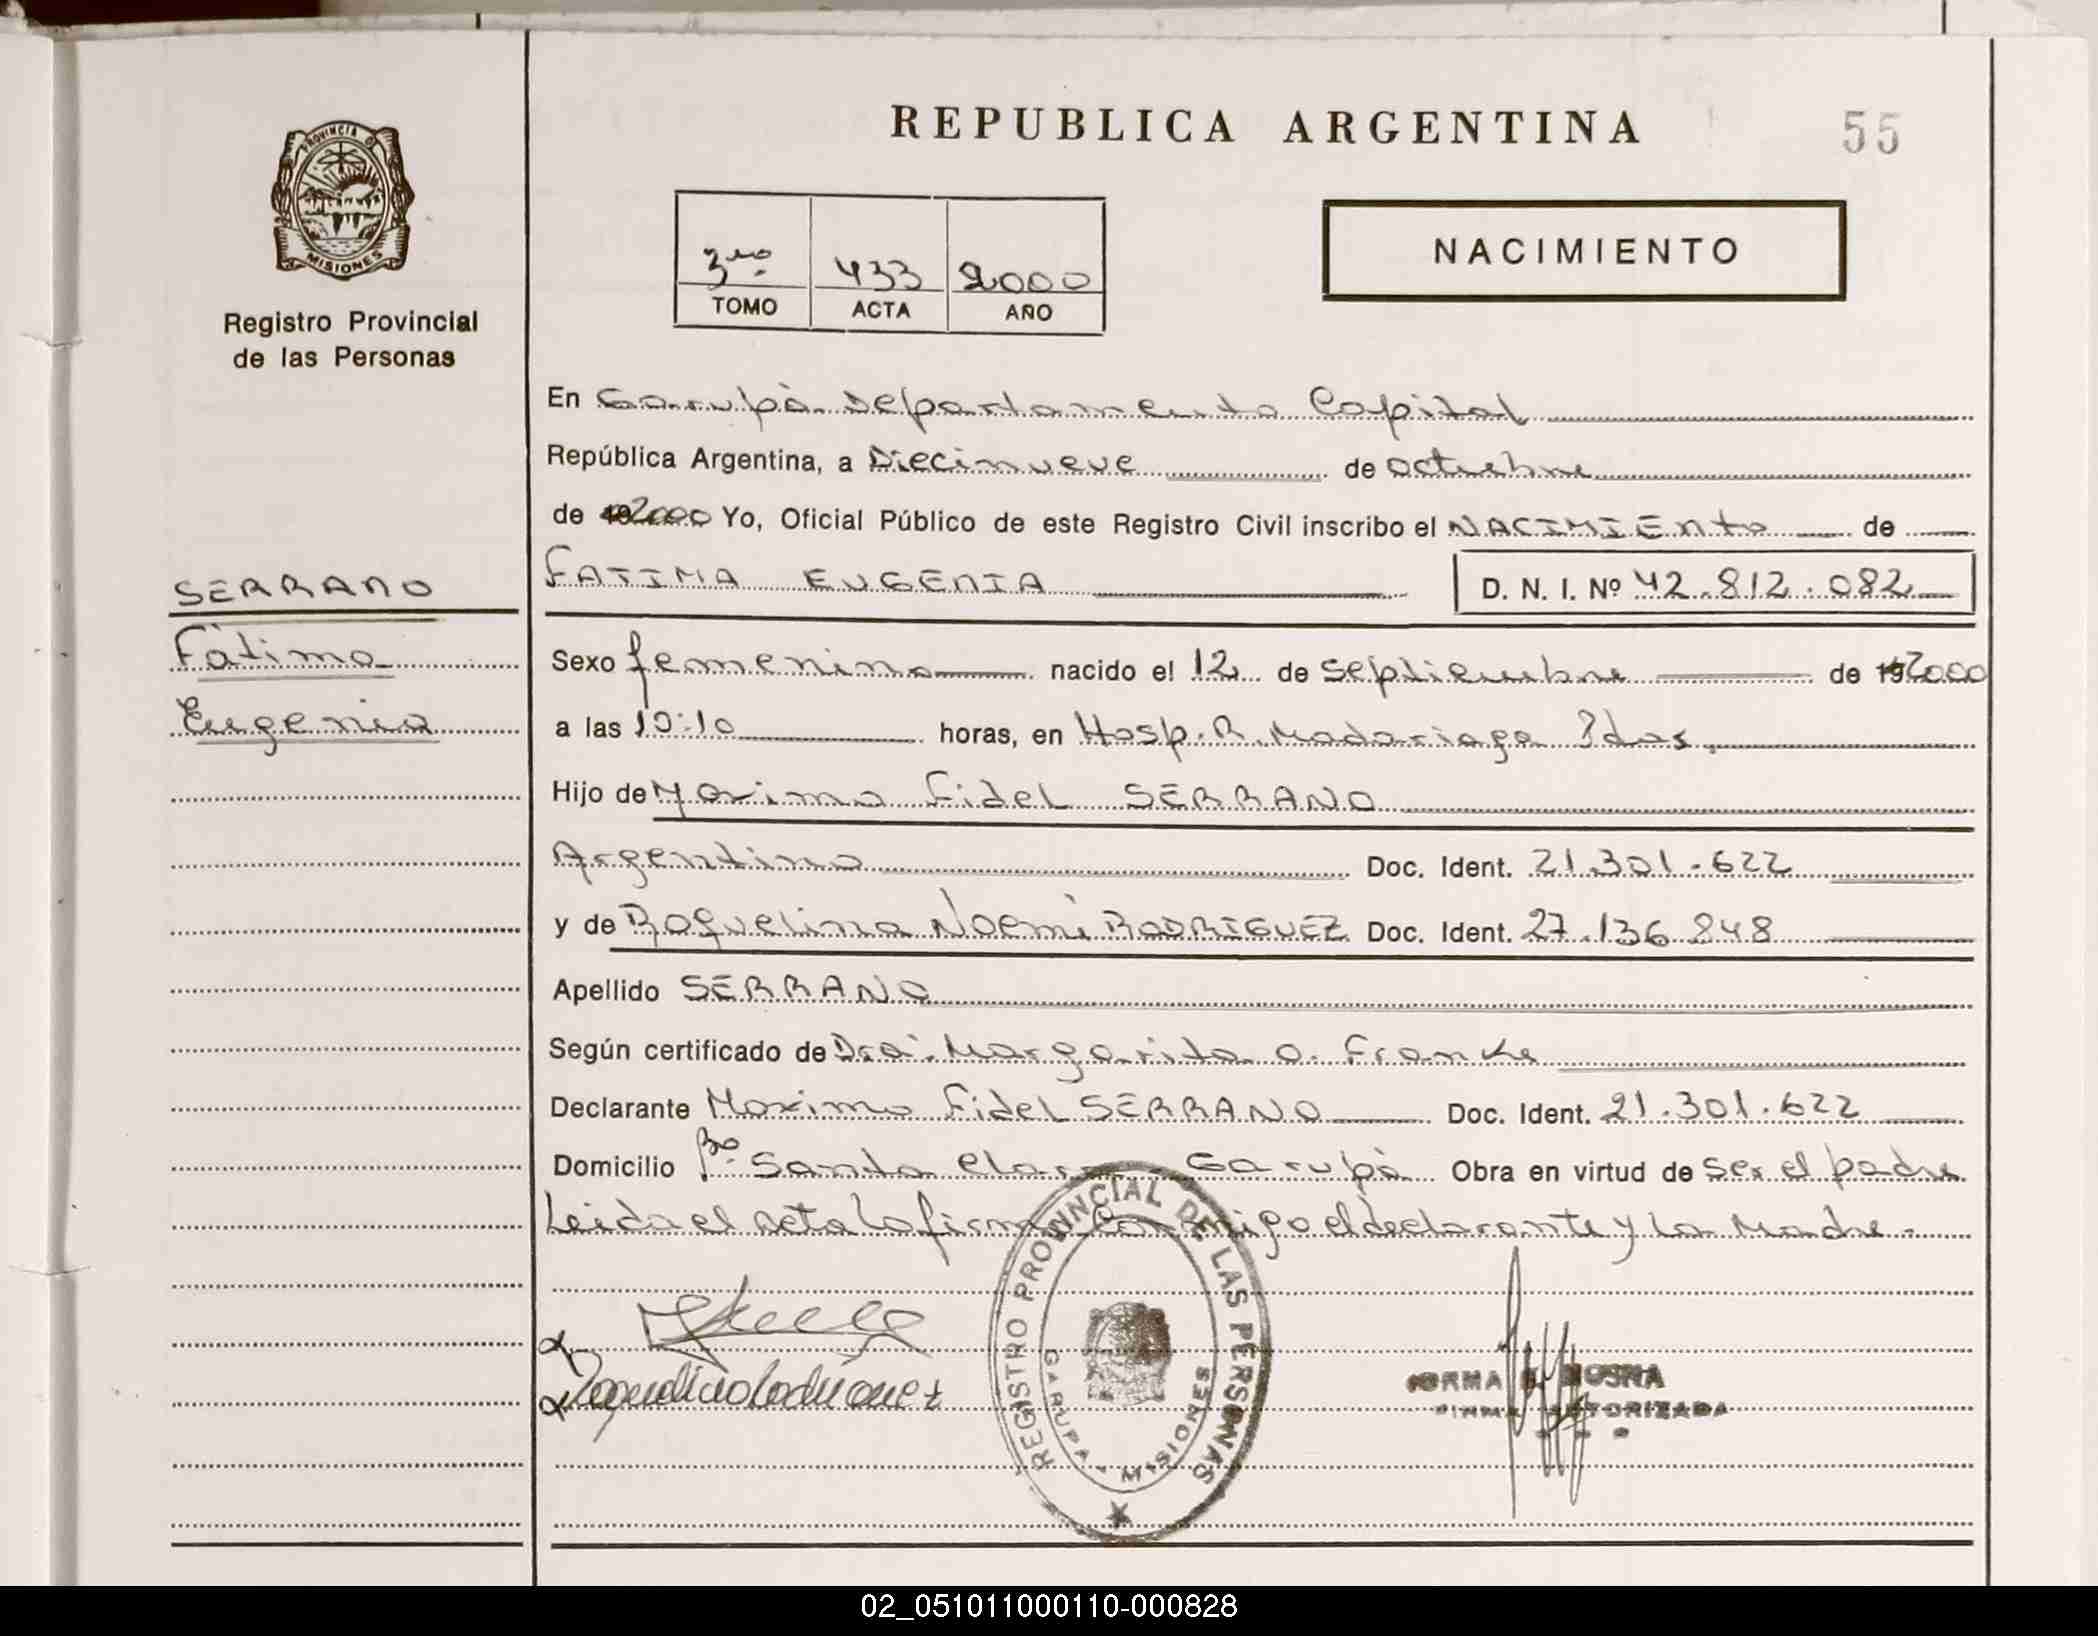 REPUBLICA ARGENTINA
55
PROVINCIA D
MISIONES
Registro Provincial
de las Personas
3ro
433
2000
TOMO
ACTA
AÑO
NACIMIENTO
En Garupà Departamento Capital
República Argentina, a Diecinueve de octubre
de 2000 Yo, Oficial Público de este Registro Civil inscribo el NACIMIENto de
SERRANO
FATIMA EUGENIA
D. N. I. Nº 42.812.082
Fàtima
Sexo femenino nacido el 12 de septiembre de 192000
Eugenia
a las 10:10 horas, en Hosp. R. Madariaga Pdas.
Hijo de Maximo Fidel SERRANO
Argentino Doc. Ident. 21.301.622
y de Roquelina Noemì RODRIGUEZ Doc. Ident. 27.136.848
Apellido SERRANO
Según certificado de Dra. Margarita O. Franke
Declarante Maximo Fidel SERRANO Doc. Ident. 21.301.622
Domicilio Bº Santa Clara - Garupà Obra en virtud de ser el padre
Leida el acta la firman conmigo el declarante y la Madre.-
REGISTRO PROVINCIAL DE LAS PERSONAS
GARUPA - MISIONES
NORMA
FIRMA AUTORIZADA
02_051011000110-000828